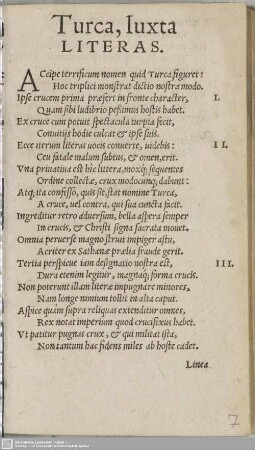 Turca, Iuxta
LITERAS.
ACcipe terrificum nomen quid Turca figuret:
Hoc triplici monstrat dictio nostra modo.
Ipse crucem prima præfert in fronte character, I.
Quam sibi ludibrio pessimus hostis habet.
Ex cruce cum potuit spectacula turpia fecit,
Conuitijs hodie culcat & ipse suis.
Ecce iterum literas uocis conuerte, uidebis: II.
Ceu fatale malum subtus, & omen, erit.
Vna priuatiua est hîc littera, moxq́; sequentes
Ordine collectæ, crux modocunq; dabunt:
Atq; ita confesso, quis sit, stat nomine Turca,
A cruce, uel contra, qui sua cuncta facit.
Ingreditur retro aduersum, bella aspera semper
In crucis, & Christi signa sacrata mouet.
Omnia peruerse magno struit impiger astu,
Acriter ex Sathanæ prælia fraude gerit.
Tertia perspicue iam designatio nostra est, III.
Dura etenim legitur, magnaq́; forma crucis.
Non poterunt illam literæ impugnare minores,
Nam longe nimium tollit in alta caput.
Aspice quàm supra reliquas extenditur omnes,
Rex notat imperium quod crucifixus habet.
Vt patitur pugnas crux, & qui militat ista,
Non tantum hac fidens miles ab hoste cadet.
Linea
7